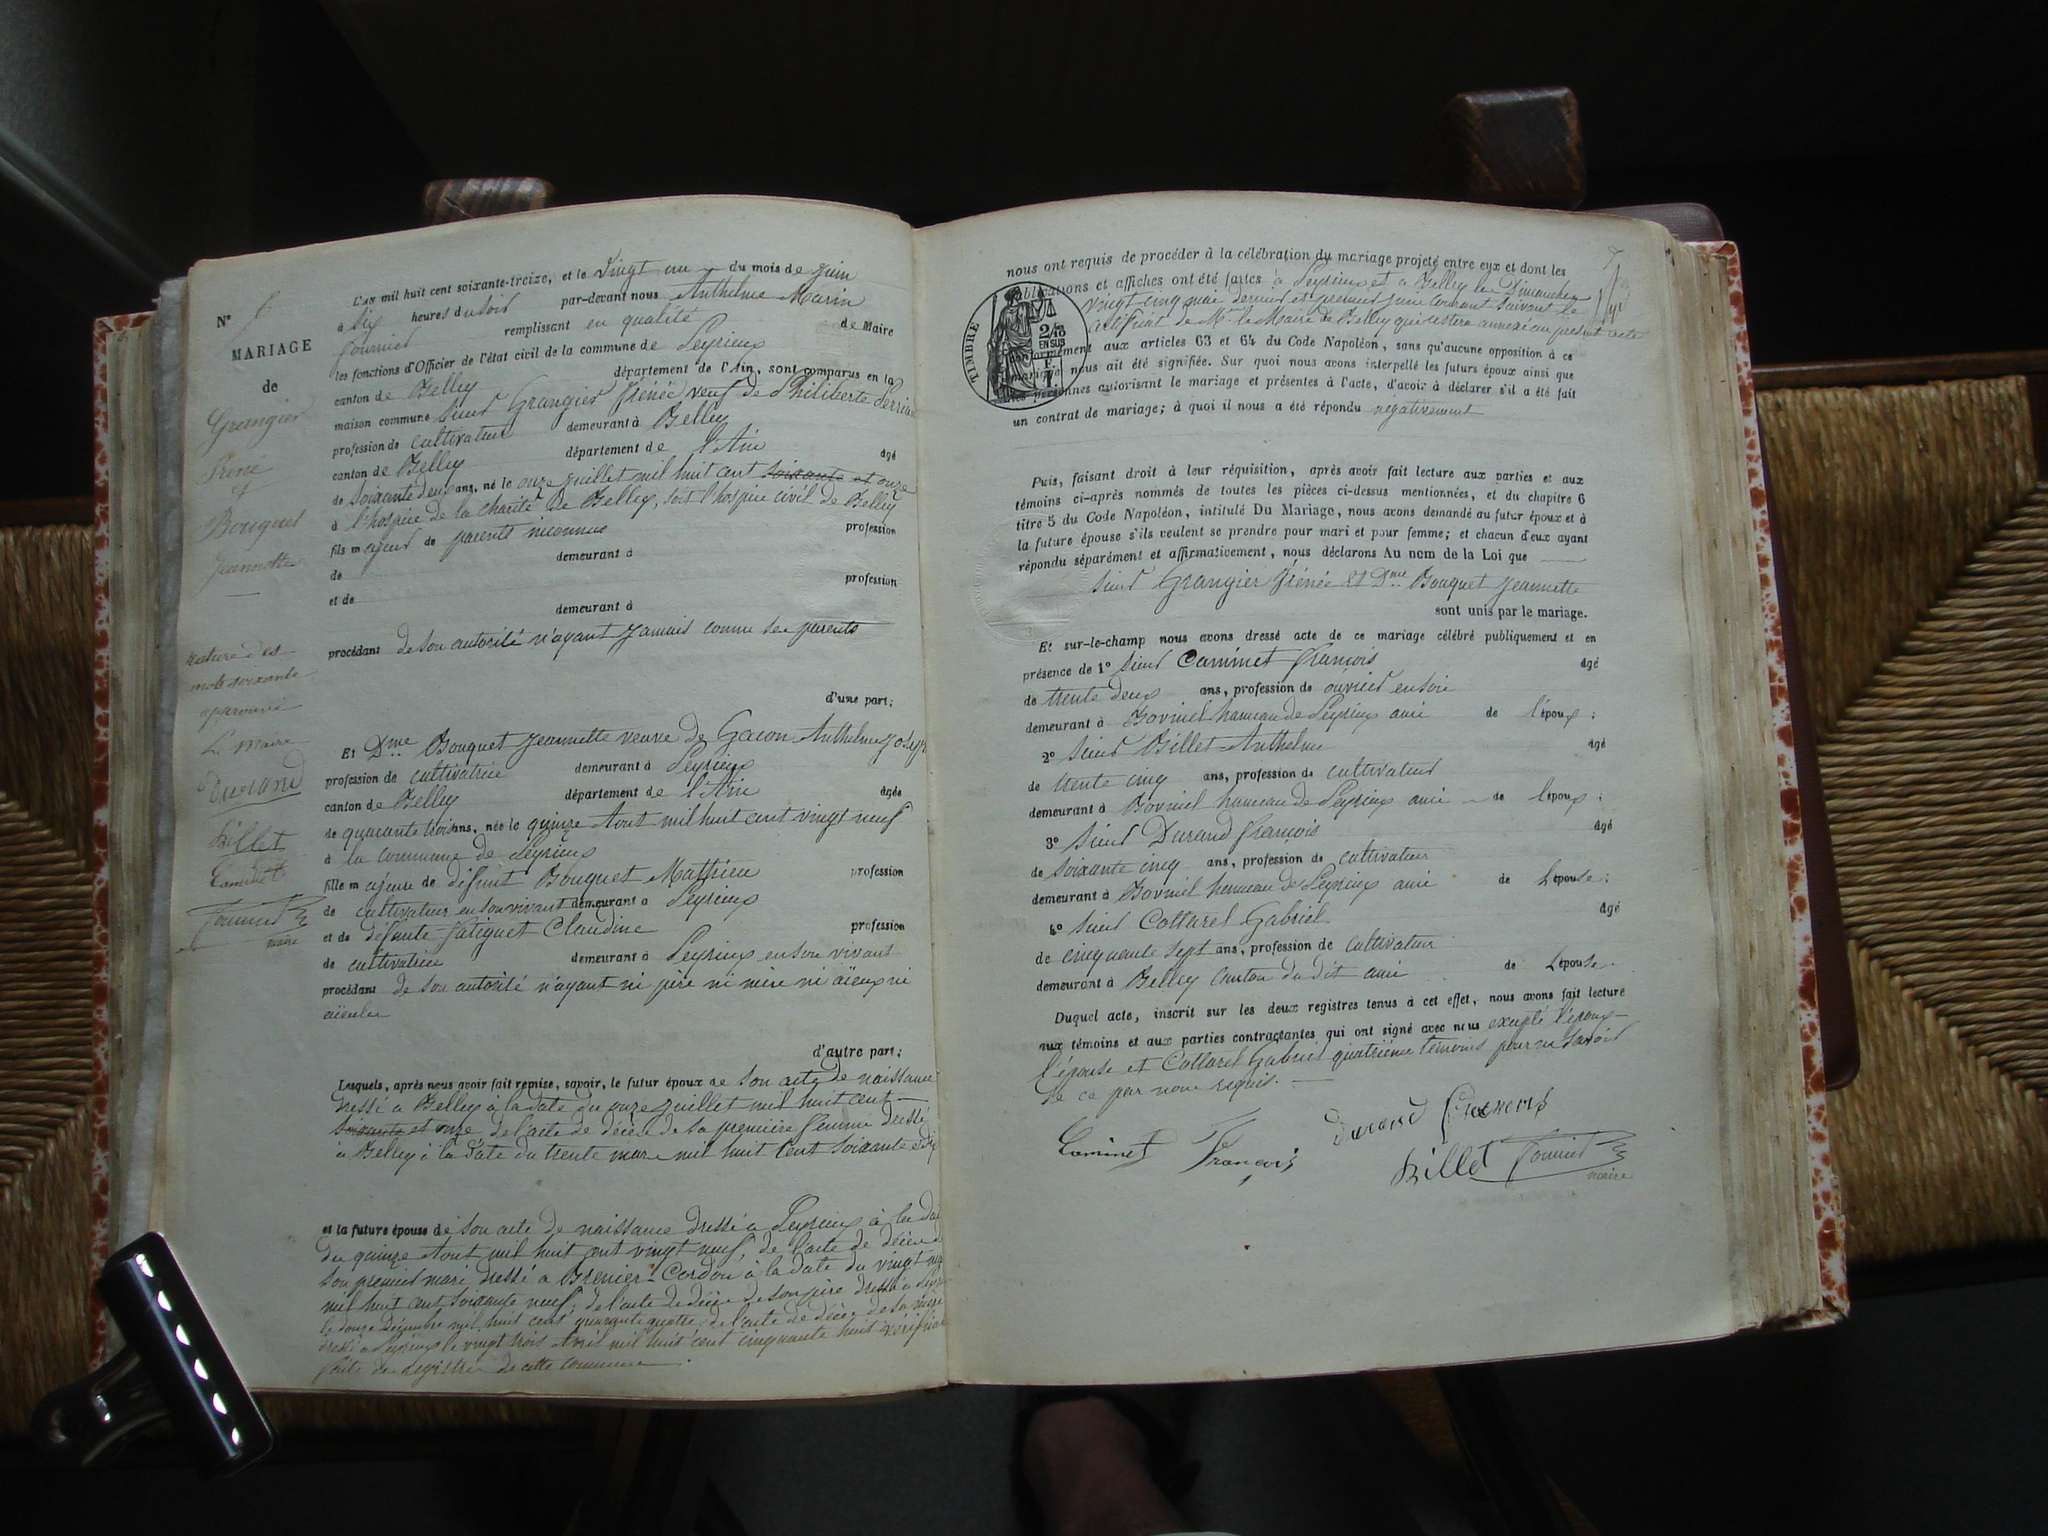 N° 
MARIAGE
de
Grangier
Irénée
et
Bouquet
Jeannette
rature des
mots soixante
approuvé
Le Maire
Durand
Billet
Caminet
Fournier
maire
L'an mil huit cent soixante-treize, et le Vingt un du mois de Juin
à Six heures du soir par-devant nous Anthelme Marin
Fournier remplissant en qualité de Maire
les fonctions d'Officier de l'état civil de la commune de Peyrieux
canton de Belley département de l'Ain, sont comparus en la
maison commune Sieur Grangier Irénée veuf de Philiberte
profession de cultivateur demeurant à Belley
canton de Belley département de l'Ain âgé
de soixante deux ans, né le onze Juillet mil huit cent soixante et onze
à l'hospice de la charité de Belley, soit l'hospice civil de Belley
fils majeur de parents inconnus profession
de demeurant à
et de profession
demeurant à
procédant de son autorité n'ayant jamais connu ses parents
d'une part;
Et Dme Bouquet Jeannette veuve de Gacon Anthelme Joseph
profession de cultivatrice demeurant à Peyrieux
canton de Belley département de l'Ain âgée
de quarante trois ans, née le quinze Aout mil huit cent vingt neuf
à la commune de Peyrieux
fille majeure de défunt Bouquet Mathieu profession
de cultivateur en son vivant demeurant à Peyrieux
et de défunte Claudine profession
de cultivatrice demeurant à Peyrieux en son vivant
procédant de son autorité n'ayant ni père ni mère ni aïeux ni
aïeules
d'autre part;
Lesquels, après nous avoir fait remise, savoir, le futur époux de son acte de naissance
dressé à Belley à la date du onze Juillet mil huit cent
soixante et onze, de l'acte de décès de sa première femme dressé
à Belley à la date du trente mars mil huit cent soixante et dix
et la future épouse de son acte de naissance dressé à Peyrieux à la date
du quinze Aout mil huit cent vingt neuf, de l'acte de décès de
son premier mari dressé à Brenier-Cordon à la date du vingt
mil huit cent soixante neuf, de l'acte de décès de son père dressé à
le douze Décembre mil huit cent quarante quatre, de l'acte de décès de sa mère
dressé à Peyrieux le vingt trois Avril mil huit cent cinquante huit vérification
faite des registres de cette commune.
nous ont requis de procéder à la célébration du mariage projeté entre eux et dont les
publications et affiches ont été faites à Peyrieux et à Belley les Dimanches
vingt cinq mai dernier et premier Juin courant suivant le
certificat de Mr. le Maire de Belley qui restera annexé au présent acte
conformément aux articles 63 et 64 du Code Napoléon, sans qu'aucune opposition à ce
mariage nous ait été signifiée. Sur quoi nous avons interpellé les futurs époux ainsi que
les personnes autorisant le mariage et présentes à l'acte, d'avoir à déclarer s'il a été fait
un contrat de mariage; à quoi il nous a été répondu négativement
TIMBRE
2/10
EN SUS
F.
1.
Puis, faisant droit à leur réquisition, après avoir fait lecture aux parties et aux
témoins ci-après nommés de toutes les pièces ci-dessus mentionnées, et du chapitre 6
titre 5 du Code Napoléon, intitulé Du Mariage, nous avons demandé au futur époux et à
la future épouse s'ils veulent se prendre pour mari et pour femme; et chacun d'eux ayant
répondu séparément et affirmativement, nous déclarons Au nom de la Loi que
Sieur Grangier Irénée et Dme Bouquet Jeannette
sont unis par le mariage.
Et sur-le-champ nous avons dressé acte de ce mariage célébré publiquement et en
présence de 1° Sieur Caminet François âgé
de trente deux ans, profession de ouvrier en soie
demeurant à hameau de Peyrieux ami de l'époux;
2° Sieur Billet Anthelme âgé
de trente cinq ans, profession de cultivateur
demeurant à hameau de Peyrieux ami de l'époux;
3° Sieur Durand François âgé
de soixante cinq ans, profession de cultivateur
demeurant à hameau de Peyrieux ami de l'épouse;
4° Sieur Collaret Gabriel âgé
de cinquante sept ans, profession de cultivateur
demeurant à Belley canton du dit ami de l'épouse.
Duquel acte, inscrit sur les deux registres tenus à cet effet, nous avons fait lecture
aux témoins et aux parties contractantes qui ont signé avec nous excepté l'époux
l'épouse et Collaret Gabriel quatrième témoins pour ne savoir
de ce par nous requis.
Durand François
Caminet François
Billet Fournier
maire